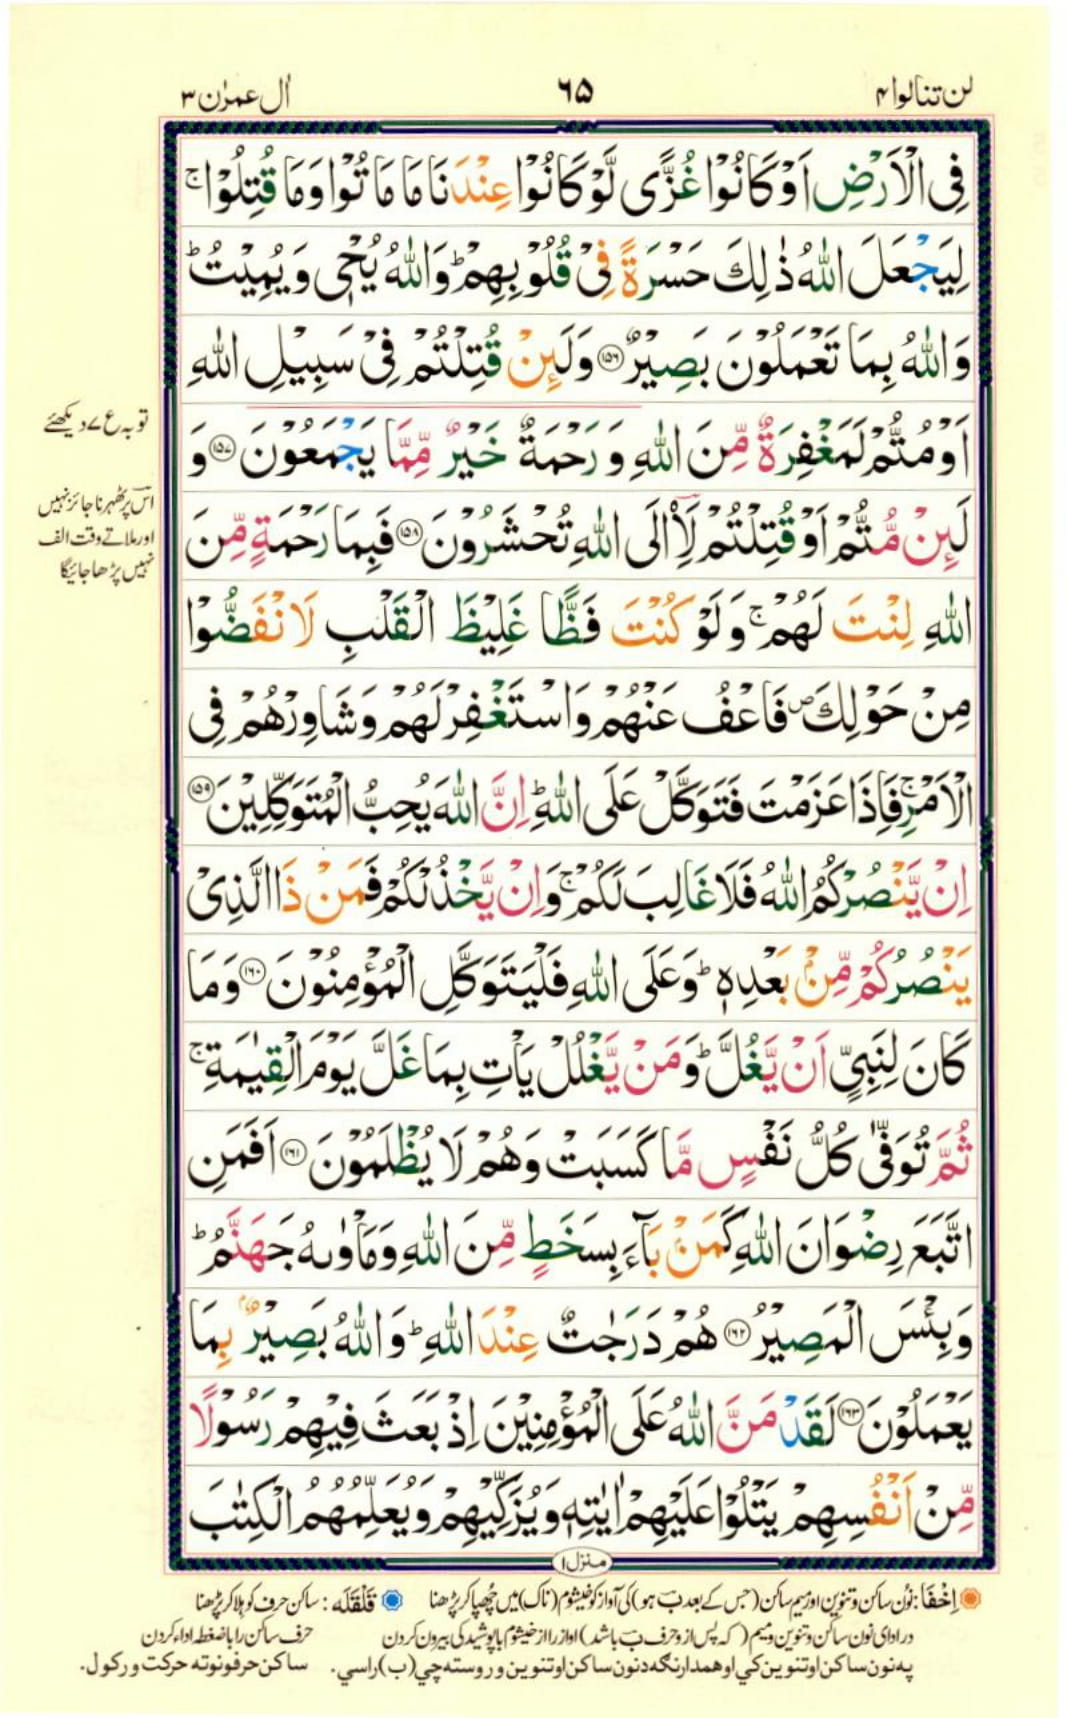 لن تنالوا ۴
٦۵
اٰل عمرٰن ۳
فِى الۡاَرۡضِ اَوۡ كَانُوۡا غُزًّى لَّوۡ كَانُوۡا عِنۡدَنَا مَا مَاتُوۡا وَمَا قُتِلُوۡا ۚ
لِيَجۡعَلَ اللّٰهُ ذٰلِكَ حَسۡرَةً فِىۡ قُلُوۡبِهِمۡ ؕ وَاللّٰهُ يُحۡىٖ وَيُمِيۡتُ ؕ
وَاللّٰهُ بِمَا تَعۡمَلُوۡنَ بَصِيۡرٌ ‏﴿۱۵۶﴾‏ وَلَئِنۡ قُتِلۡتُمۡ فِىۡ سَبِيۡلِ اللّٰهِ
اَوۡ مُتُّمۡ لَمَغۡفِرَةٌ مِّنَ اللّٰهِ وَرَحۡمَةٌ خَيۡرٌ مِّمَّا يَجۡمَعُوۡنَ ‏﴿۱۵۷﴾‏ وَ
توبہ ع ۷ دیکھئے
لَئِنۡ مُّتُّمۡ اَوۡ قُتِلۡتُمۡ لَاۡاِلَى اللّٰهِ تُحۡشَرُوۡنَ ‏﴿۱۵۸﴾‏ فَبِمَا رَحۡمَةٍ مِّنَ
اس پر ٹھہرنا جائز نہیں
اور ملاتے وقت الف
نہیں پڑھا جائیگا
اللّٰهِ لِنۡتَ لَهُمۡ‌ۚ وَلَوۡ كُنۡتَ فَظًّا غَلِيۡظَ الۡقَلۡبِ لَانْفَضُّوۡا
مِنۡ حَوۡلِكَ‌ ص فَاعۡفُ عَنۡهُمۡ وَاسۡتَغۡفِرۡ لَهُمۡ وَشَاوِرۡهُمۡ فِى
الۡاَمۡرِ‌ۚ فَاِذَا عَزَمۡتَ فَتَوَكَّلۡ عَلَى اللّٰهِ‌ؕ اِنَّ اللّٰهَ يُحِبُّ الۡمُتَوَكِّلِيۡنَ ‏﴿۱۵۹﴾‏
اِنۡ يَّنۡصُرۡكُمُ اللّٰهُ فَلَا غَالِبَ لَكُمۡ‌ۚ وَاِنۡ يَّخۡذُلۡكُمۡ فَمَنۡ ذَا الَّذِىۡ
يَنۡصُرُكُمۡ مِّنۡۢ بَعۡدِهٖ‌ؕ وَعَلَى اللّٰهِ فَلۡيَتَوَكَّلِ الۡمُؤۡمِنُوۡنَ ‏﴿۱۶۰﴾‏ وَمَا
كَانَ لِنَبِىٍّ اَنۡ يَّغُلَّ‌ؕ وَمَنۡ يَّغۡلُلۡ يَاۡتِ بِمَا غَلَّ يَوۡمَ الۡقِيٰمَةِ‌ۚ
ثُمَّ تُوَفّٰى كُلُّ نَفۡسٍ مَّا كَسَبَتۡ وَهُمۡ لَا يُظۡلَمُوۡنَ ‏﴿۱۶۱﴾‏ اَفَمَنِ
اتَّبَعَ رِضۡوَانَ اللّٰهِ كَمَنۡۢ بَآءَ بِسَخَطٍ مِّنَ اللّٰهِ وَمَاۡوٰٮهُ جَهَنَّمُ‌ؕ
وَ بِئۡسَ الۡمَصِيۡرُ ‏﴿۱۶۲﴾‏ هُمۡ دَرَجٰتٌ عِنۡدَ اللّٰهِ ‌ؕ وَاللّٰهُ بَصِيۡرٌۢ بِمَا
يَعۡمَلُوۡنَ ‏﴿۱۶۳﴾‏ لَقَدۡ مَنَّ اللّٰهُ عَلَى الۡمُؤۡمِنِيۡنَ اِذۡ بَعَثَ فِيۡهِمۡ رَسُوۡلًا
مِّنۡ اَنۡفُسِهِمۡ يَتۡلُوۡا عَلَيۡهِمۡ اٰيٰتِهٖ وَيُزَكِّيۡهِمۡ وَيُعَلِّمُهُمُ الۡكِتٰبَ
منزل ۱
اِخْفَا: نُون ساکن و تنوین اور میم ساکن (جس کے بعد ب ہو) کی آواز کو خیشوم (ناک) میں چھپا کر پڑھنا
قَلْقَلَه: ساکن حرف کو ہلا کر پڑھنا
در ادای نون ساکن و تنوین و میم (که پس از و حرف ب باشد) آواز را از خیشوم با پوشیدگی بیرون کردن
حرف ساکن را با ضغطه اداء کردن
په نون ساکن او تنوین کي او همدارنگه دنون ساکن او تنوین و روسته چي (ب) راسي.
ساکن حرفونو ته حرکت ورکول.